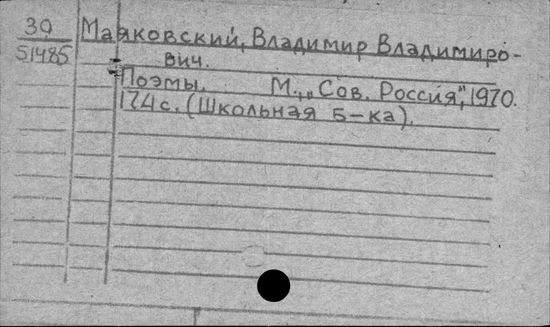 39
51485
Маяковский, Владимир Владимиро-
вич.
Поэмы. М., „Сов. Россия", 1970.
174 с. (Школьная б-ка).